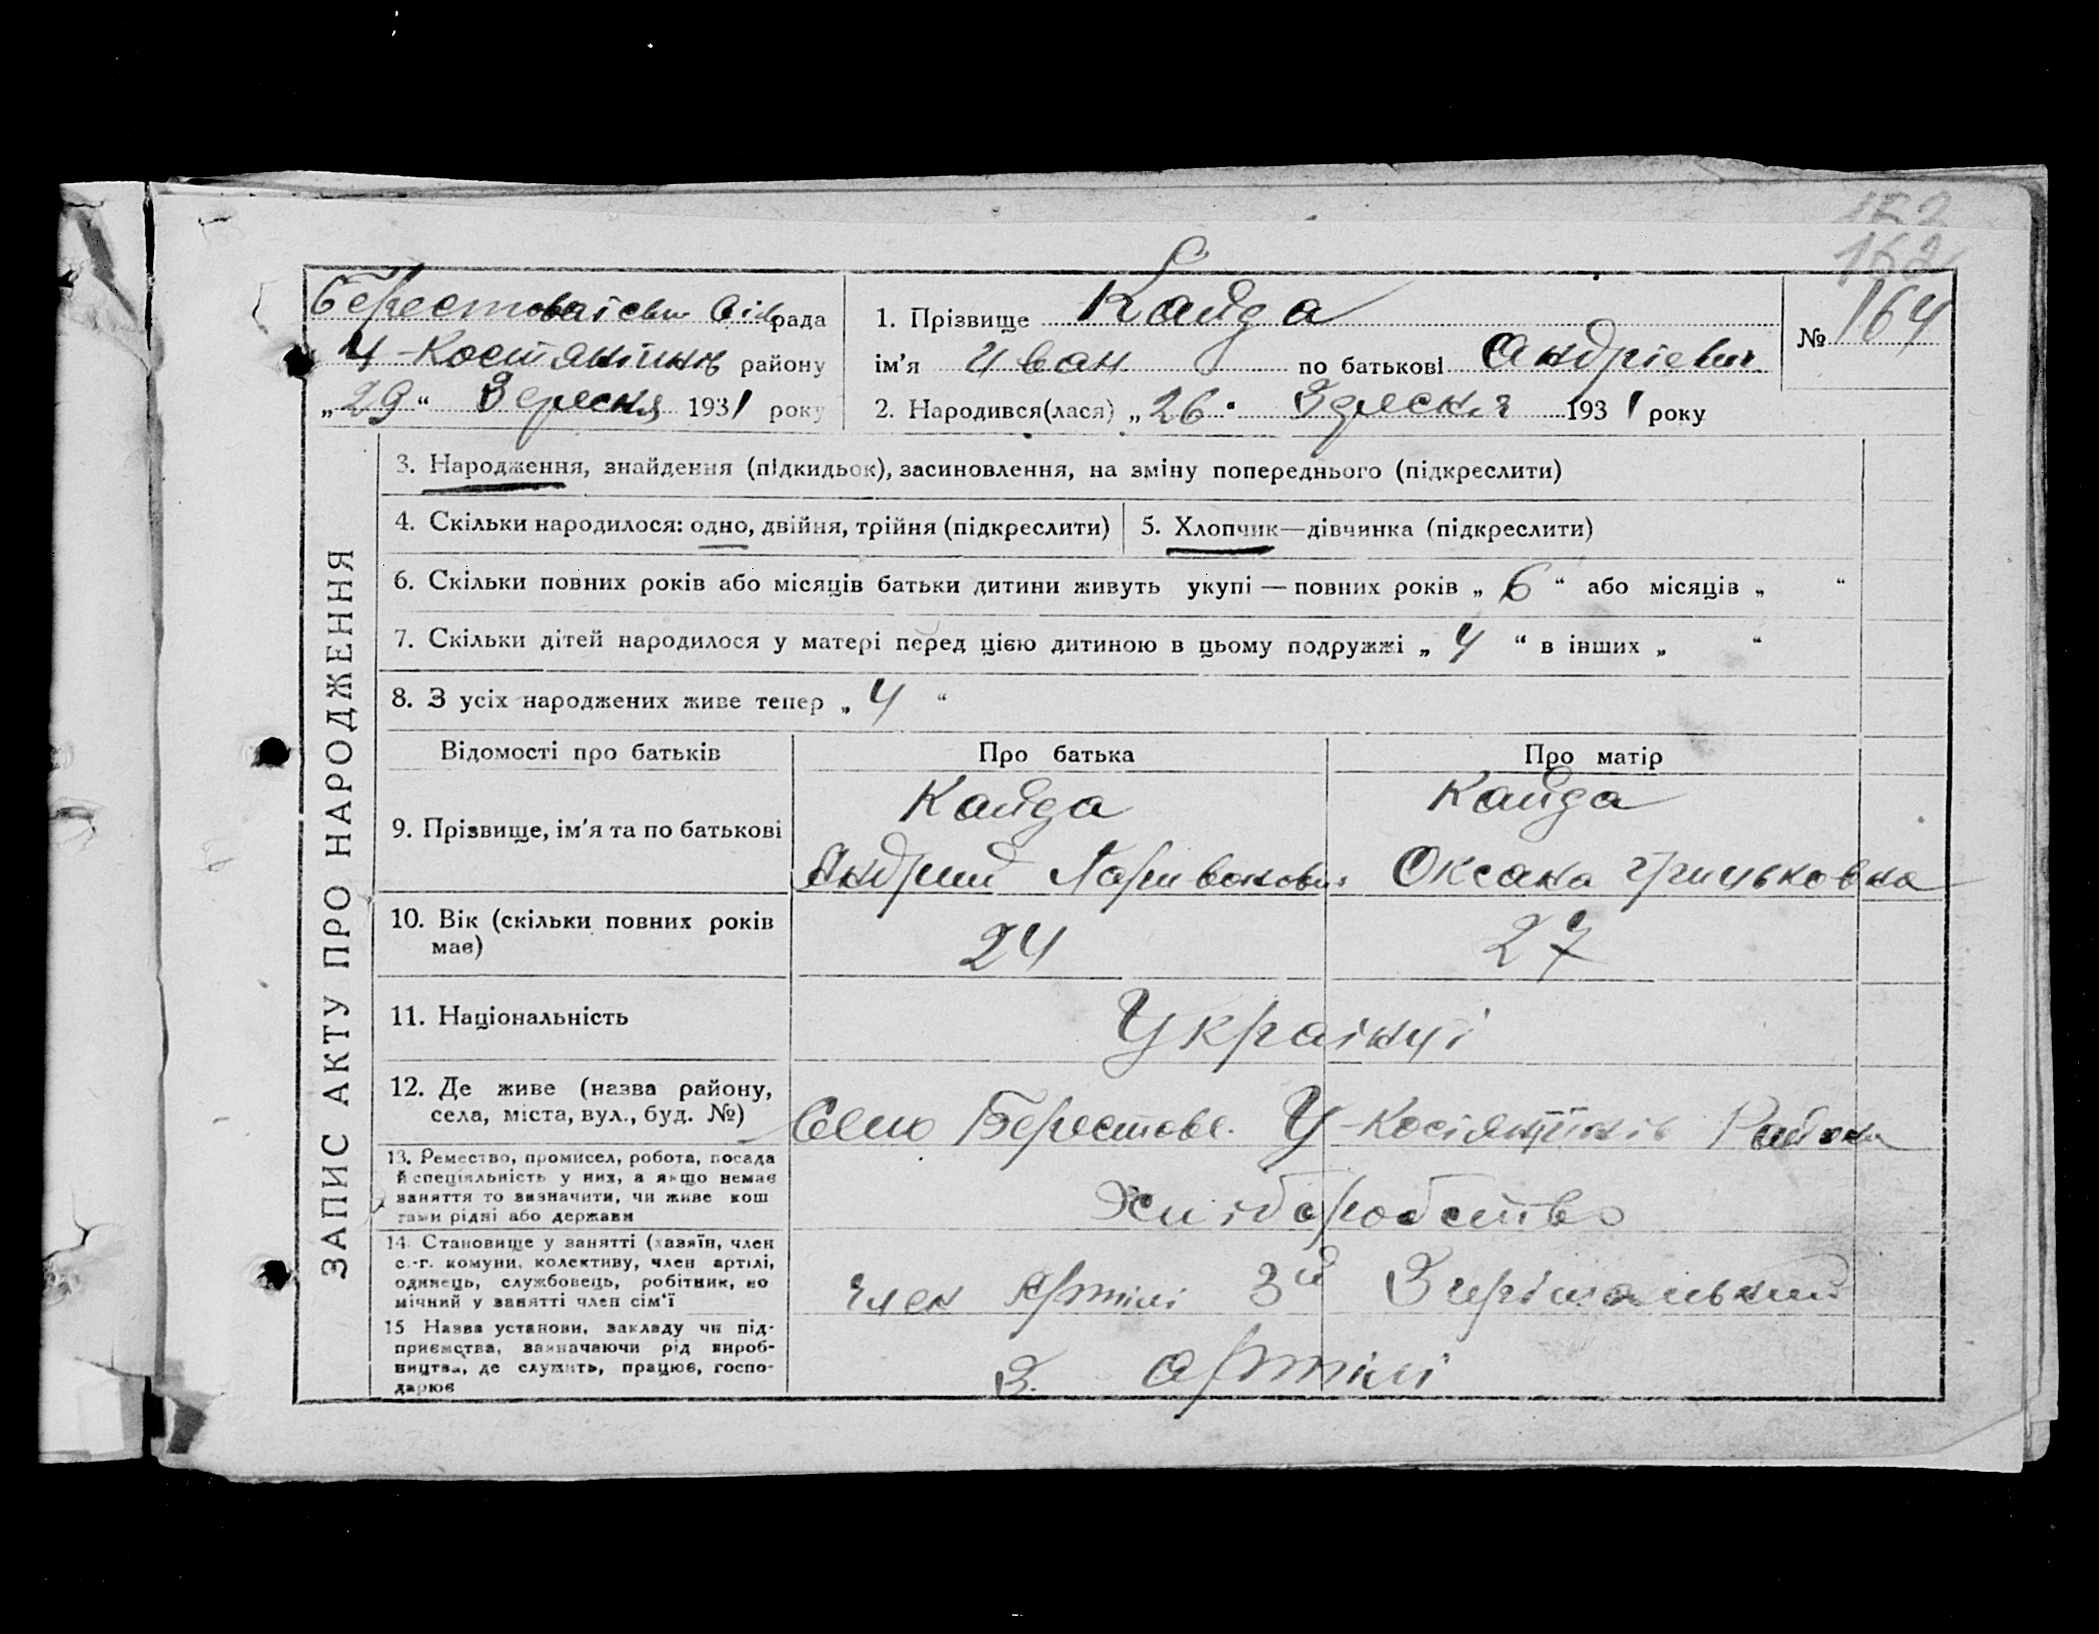 152
162
Берестоваісви Сіл рада
Ч-Костянтинів району
„29“ Вересня 1931 року
1. Прізвище Кайда
№ 164
ім'я Иван по батькові Андріевич
2. Народився(лася) „26“ Вересня 1931 року
ЗАПИС АКТУ ПРО НАРОДЖЕННЯ
3. Народження, знайдення (підкидьок), засиновлення, на зміну попереднього (підкреслити)
4. Скільки народилося: одно, двійня, трійня (підкреслити) 5. Хлопчик—дівчинка (підкреслити)
6. Скільки повних років або місяців батьки дитини живуть укупі — повних років „6“ або місяців „ “
7. Скільки дітей народилося у матері перед цією дитиною в цьому подружжі „4“ в інших „ “
8. З усіх народжених живе тепер „4“
Відомості про батьків Про батька Про матір
9. Прізвище, ім'я та по батькові
Кайда Кайда
Андрий Ларивонович Оксана Грицьковна
10. Вік (скільки повних років
має)
24 27
11. Національність Українці
12. Де живе (назва району,
села, міста, вул., буд. №)
Село Берестове. Ч-Костянтинів Району
13. Ремество, промисел, робота, посада
й спеціяльність у них, а якщо немає
заняття то визначити, чи живе кош
тами рідні або держави
Хліборобство
14. Становище у занятті (хазяїн, член
с.-г. комуни, колективу, член артілі,
одинець, службовець, робітник, по
мічний у занятті член сім'ї
член Артілі 3й
15 Назва установи, закладу чи під-
приємства, зазначаючи рід вироб-
ництва, де служить, працює, госпо-
дарює
В. Артілі